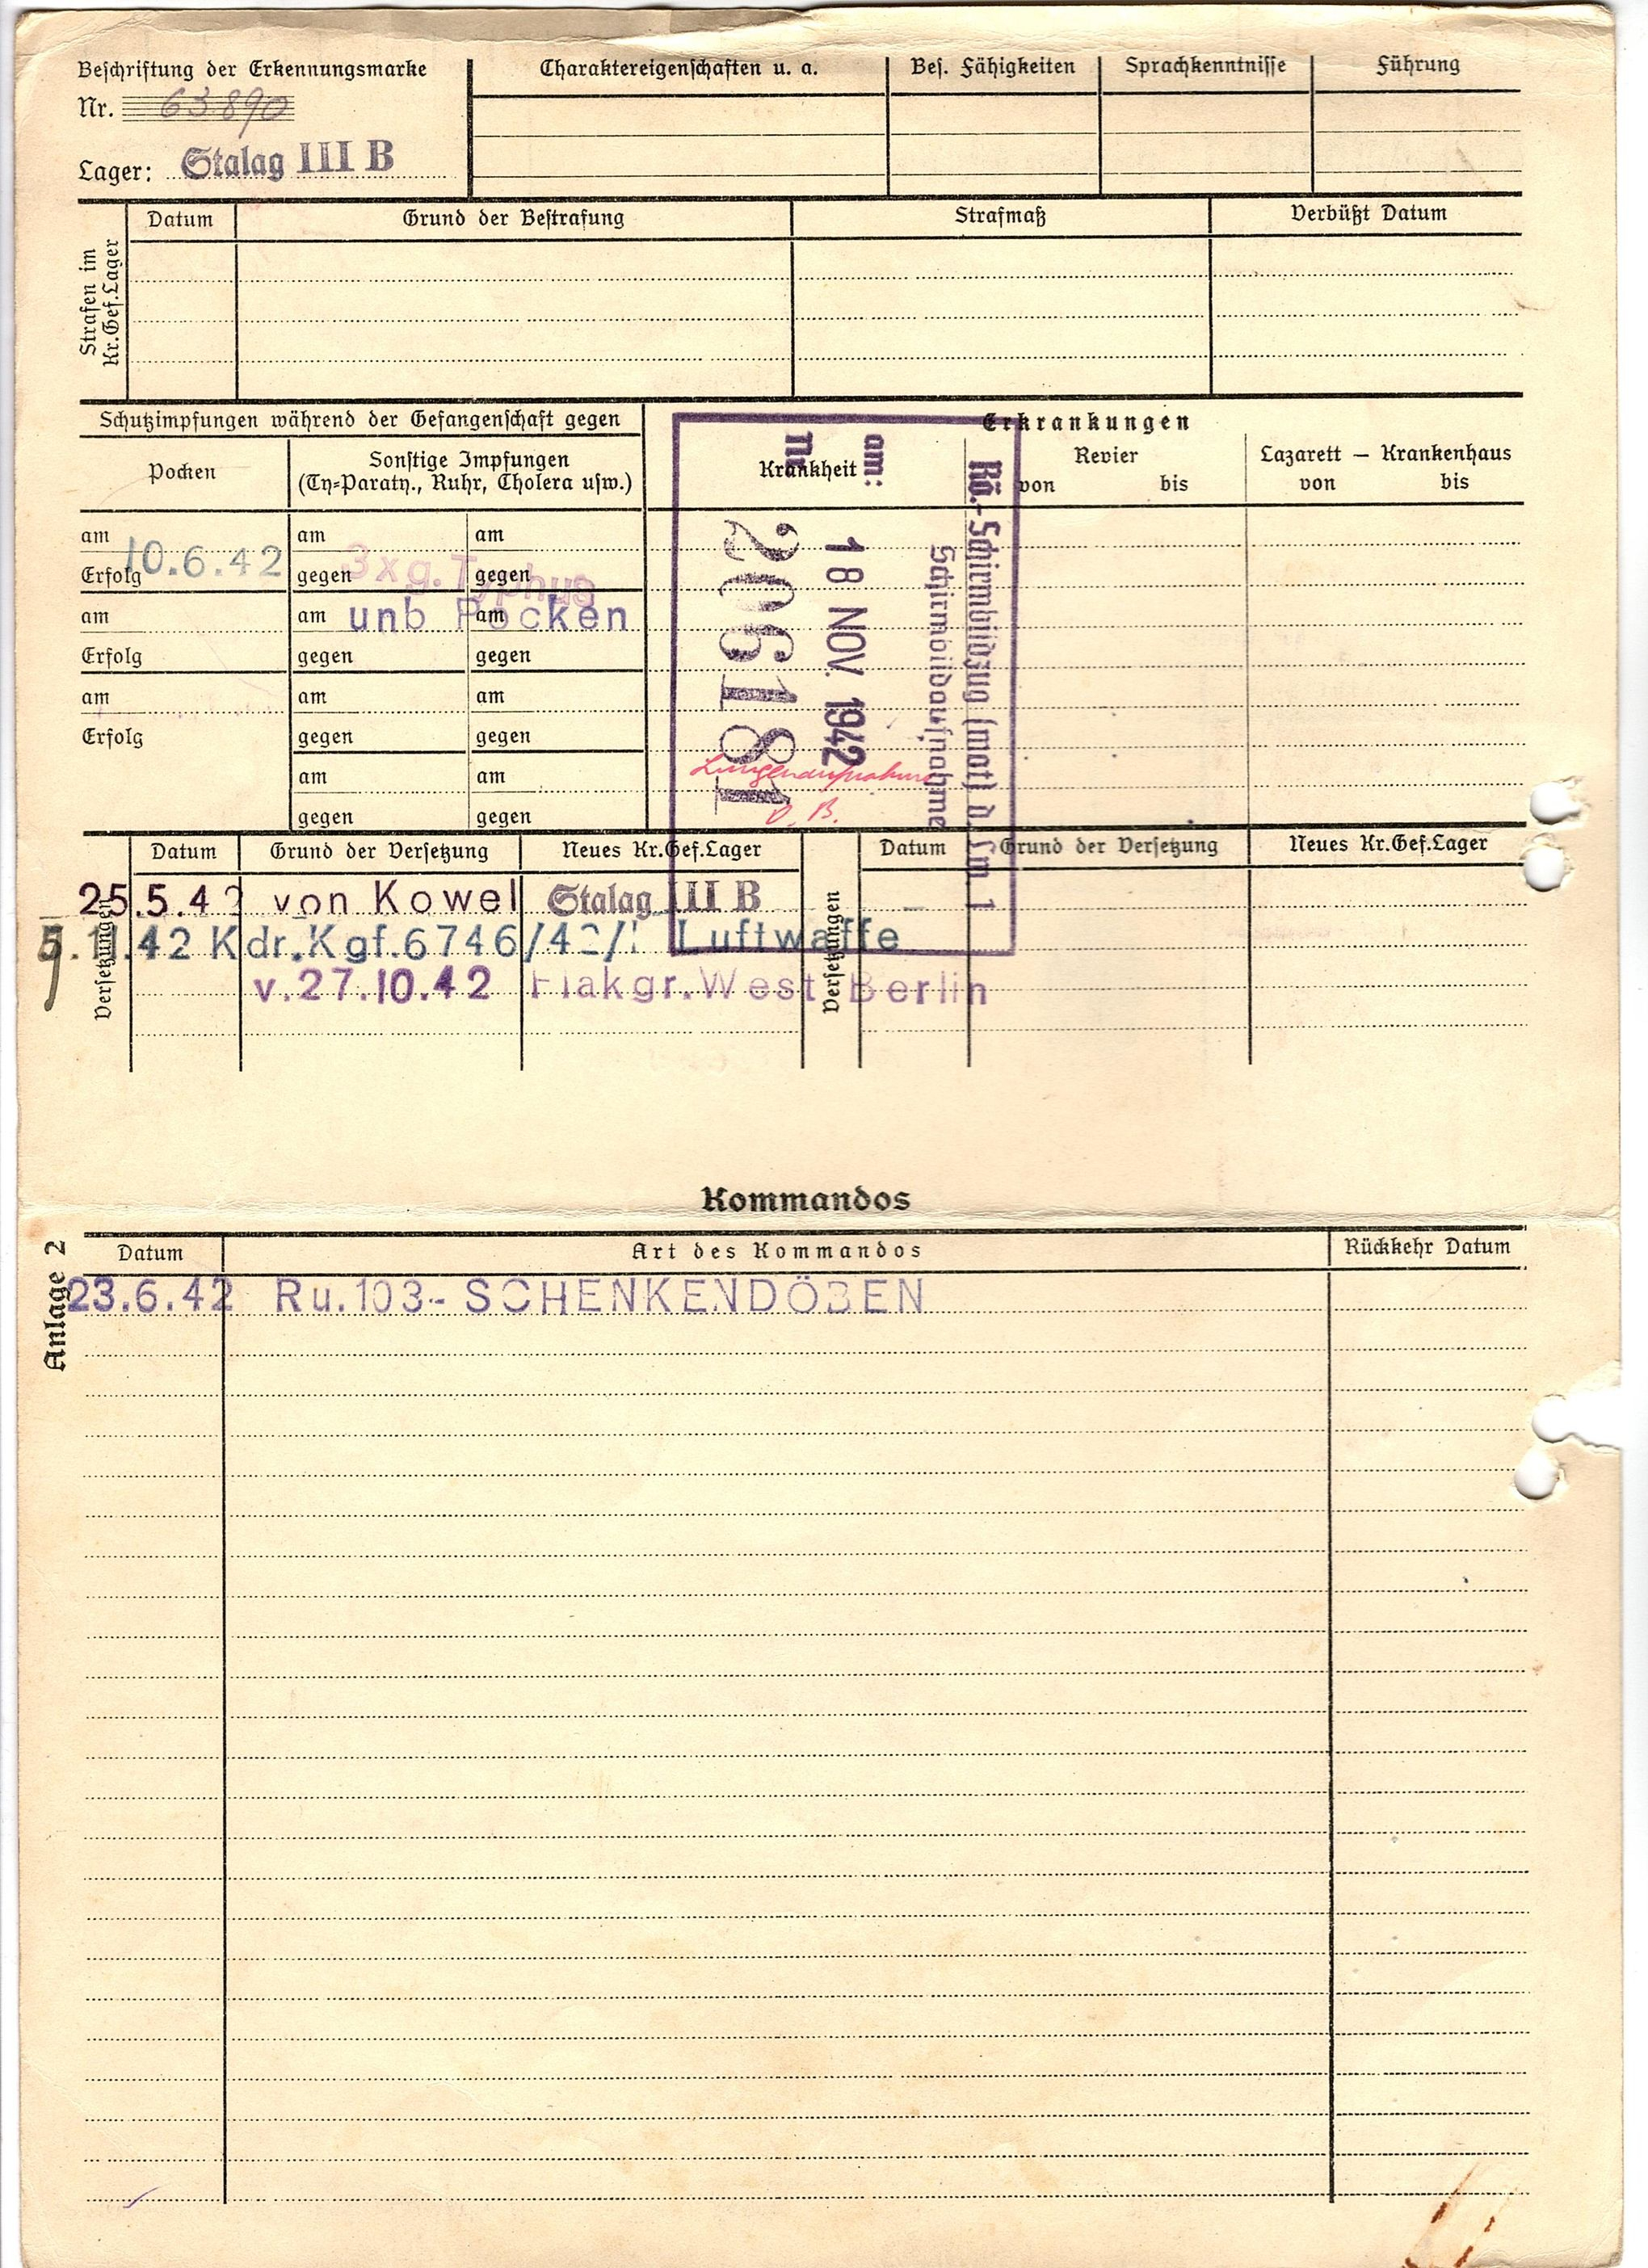 Beschriftung der Erkennungsmarke
Nr. 63890
Lager: Stalag III B
Charaktereigenschaften u. a.
Bes. Fähigkeiten
Sprachkenntnisse
Führung
Strafen im
Kr.Gef.Lager
Datum
Grund der Bestrafung
Strafmaß
Verbüßt Datum
Schutzimpfungen während der Gefangenschaft gegen
Pocken
Sonstige Impfungen
(Ty=Paraty., Ruhr, Cholera usw.)
am 10.6.42
Erfolg
am
Erfolg
am
Erfolg
am am
gegen 3xg.Typhus gegen
am unb Pocken am
gegen gegen
am am
gegen gegen
am am
gegen gegen
Erkrankungen
Krankheit
Revier
von bis
Lazarett – Krankenhaus
von bis
Rö.-Schirmbildzug (mot) d. Lw. 1
Schirmbildaufnahme
am: 18 NOV. 1942
Nr. 206181
Lungenaufnahme
o. B.
Versetzungen
Datum
Grund der Versetzung
Neues Kr.Gef.Lager
Versetzungen
Datum
Grund der Versetzung
Neues Kr.Gef.Lager
25.5.42 von Kowel Stalag III B
5.11.42 Kdr.Kgf.6746/42/1 Luftwaffe
v.27.10.42 Flakgr.West Berlin
Kommandos
Anlage 2
Datum
Art des Kommandos
Rückkehr Datum
23.6.42 Ru.103- SCHENKENDÖBEN